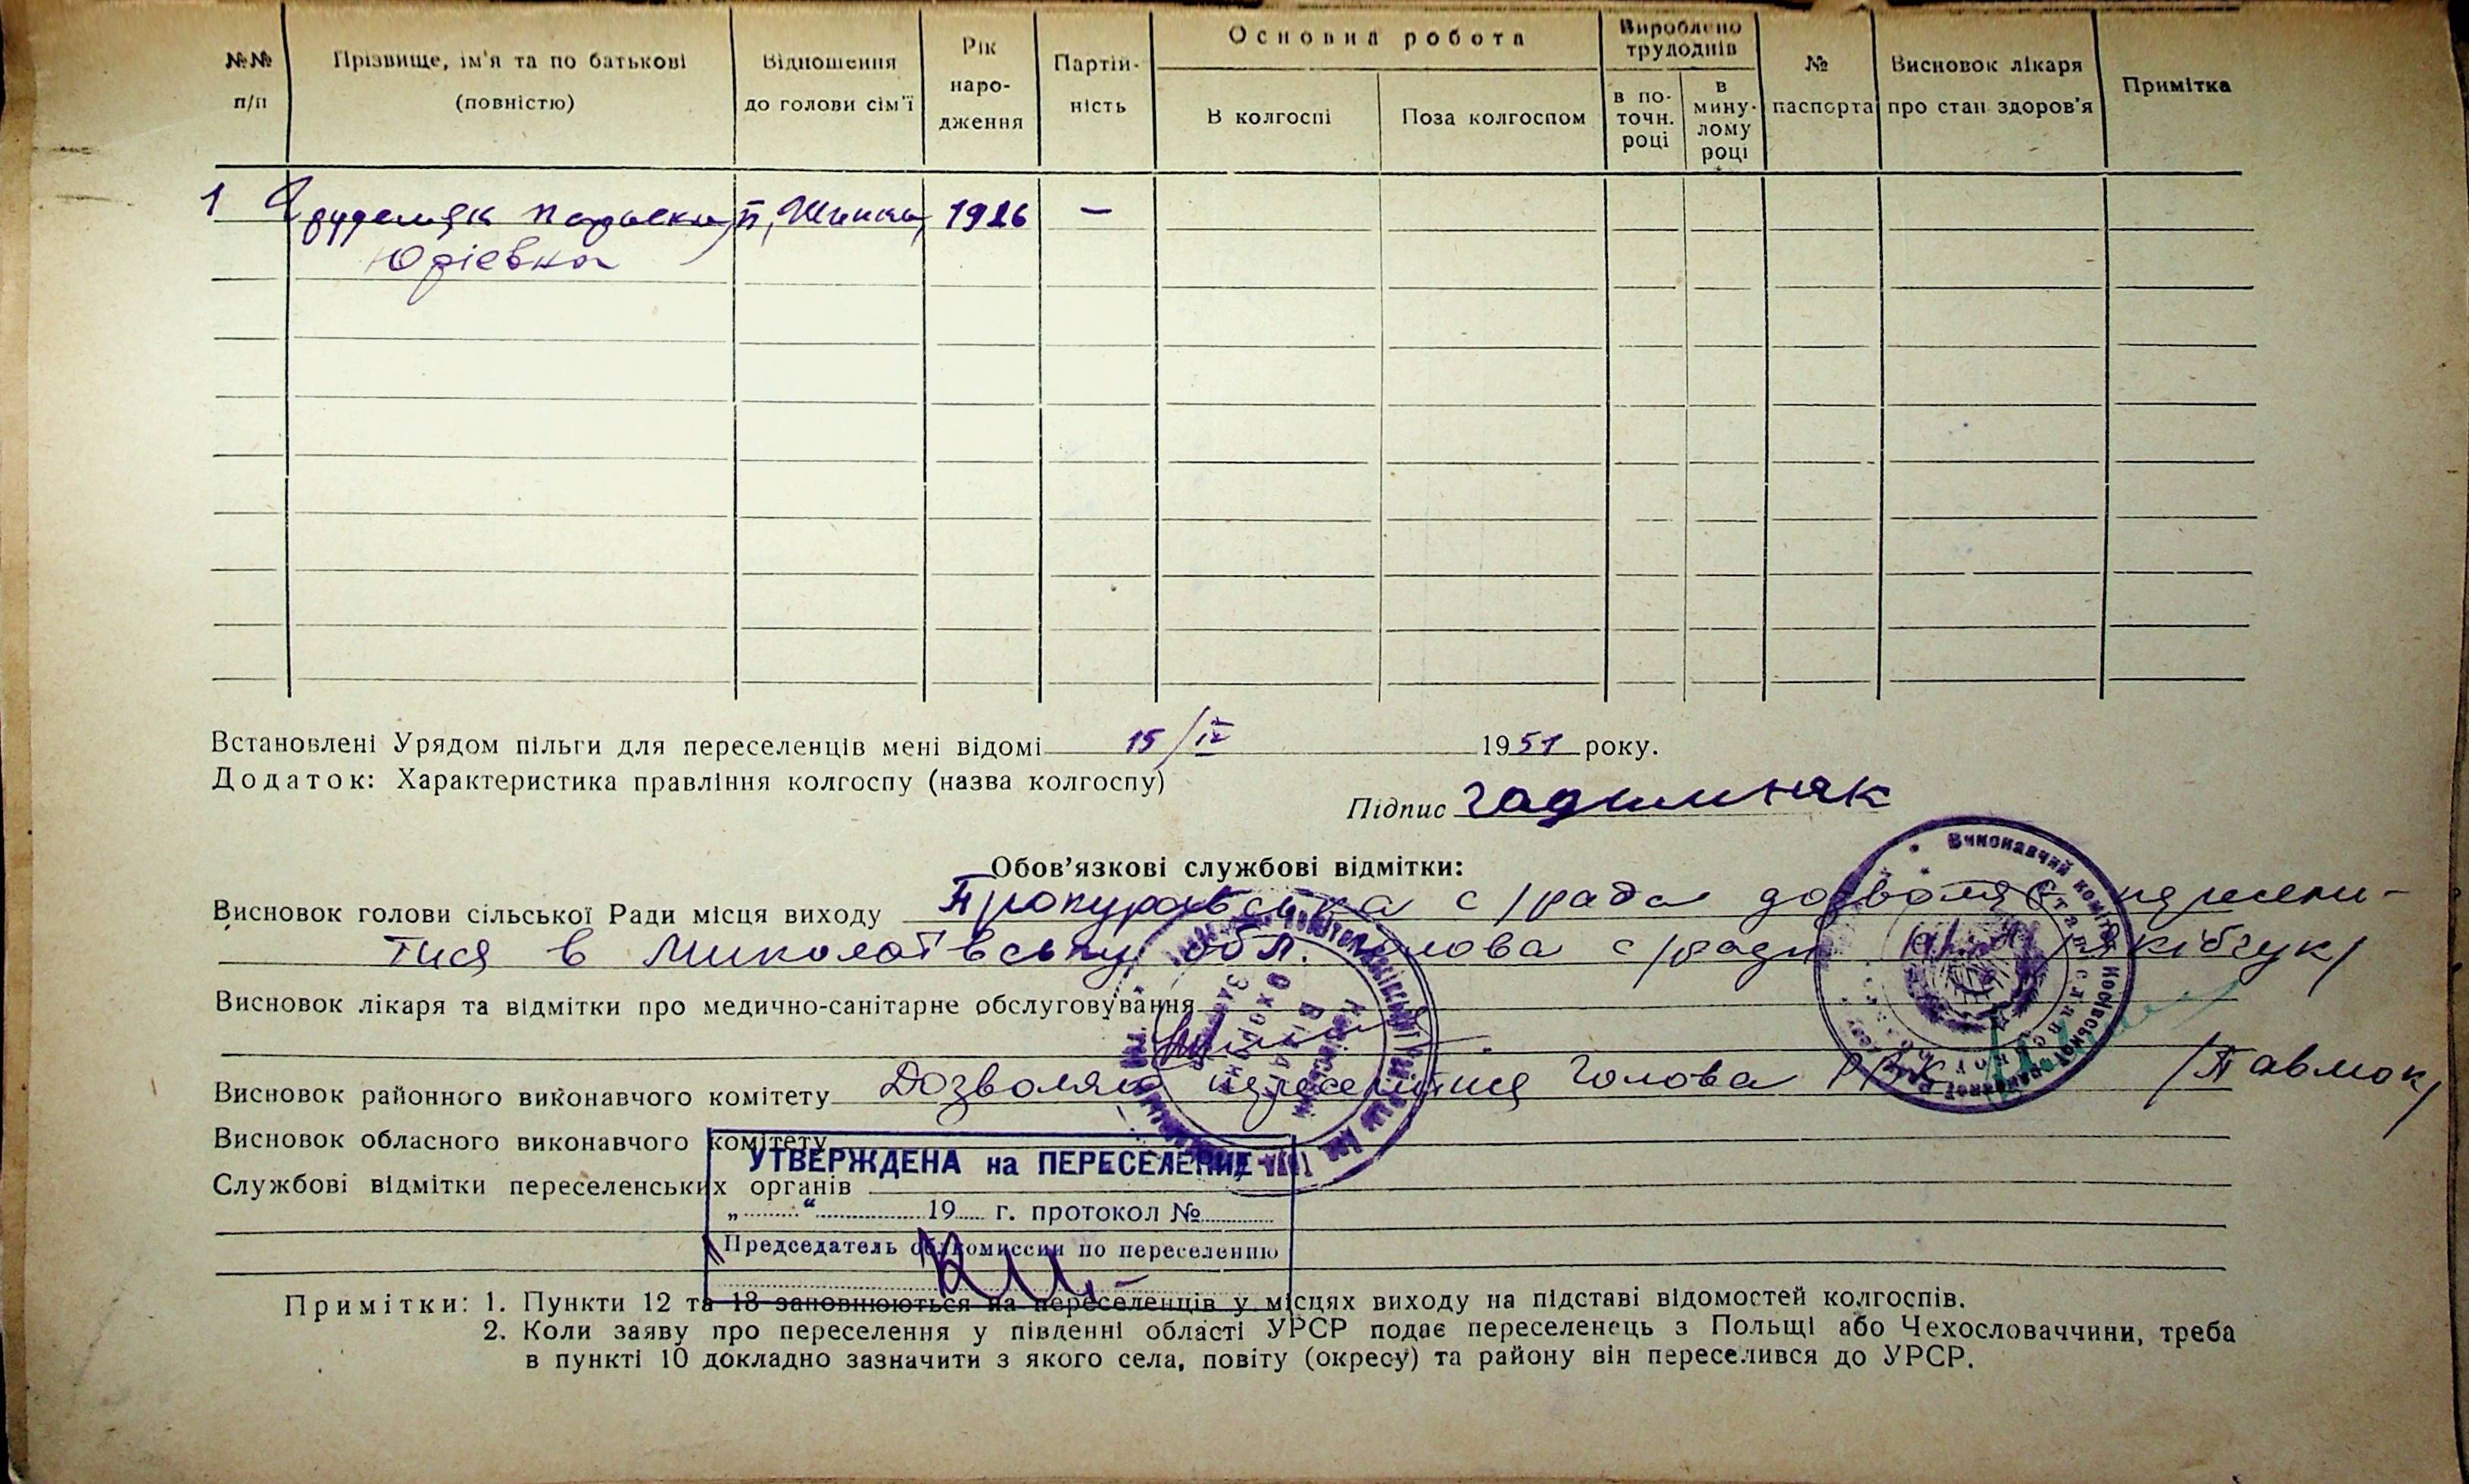 №№ п/п
Прізвище, ім'я та по батькові (повністю)
Відношення до голови сім'ї
Рік наро- дження
Партій- ність
Основна робота
В колгоспі
Поза колгоспом
Вироблено трудоднів
в по- точн. році
в мину- лому році
№ паспорта
Висновок лікаря про стан здоров'я
Примітка
1 Параска 1926 —
Юріевна
Встановлені Урядом пільги для переселенців мені відомі 15/IV 1951 року.
Додаток: Характеристика правління колгоспу (назва колгоспу)
Підпис
Обов'язкові службові відмітки:
Висновок голови сільської Ради місця виходу Прокуравська с/рада дозволяє пересели-
тися в Миколаївську обл. Голова с/ради /Якібчук/
Висновок лікаря та відмітки про медично-санітарне обслуговування
Висновок районного виконавчого комітету Дозволяю переселитися Голова РВК /Павлюк/
Висновок обласного виконавчого комітету
УТВЕРЖДЕНА на ПЕРЕСЕЛЕНИЕ
Службові відмітки переселенських органів
„........“ 19..... г. протокол №
Председатель облкомиссии по переселению
Примітки: 1. Пункти 12 та 13 заповнюються на переселенців у місцях виходу на підставі відомостей колгоспів.
2. Коли заяву про переселення у південні області УРСР подає переселенець з Польщі або Чехословаччини, треба
в пункті 10 докладно зазначити з якого села, повіту (окресу) та району він переселився до УРСР.